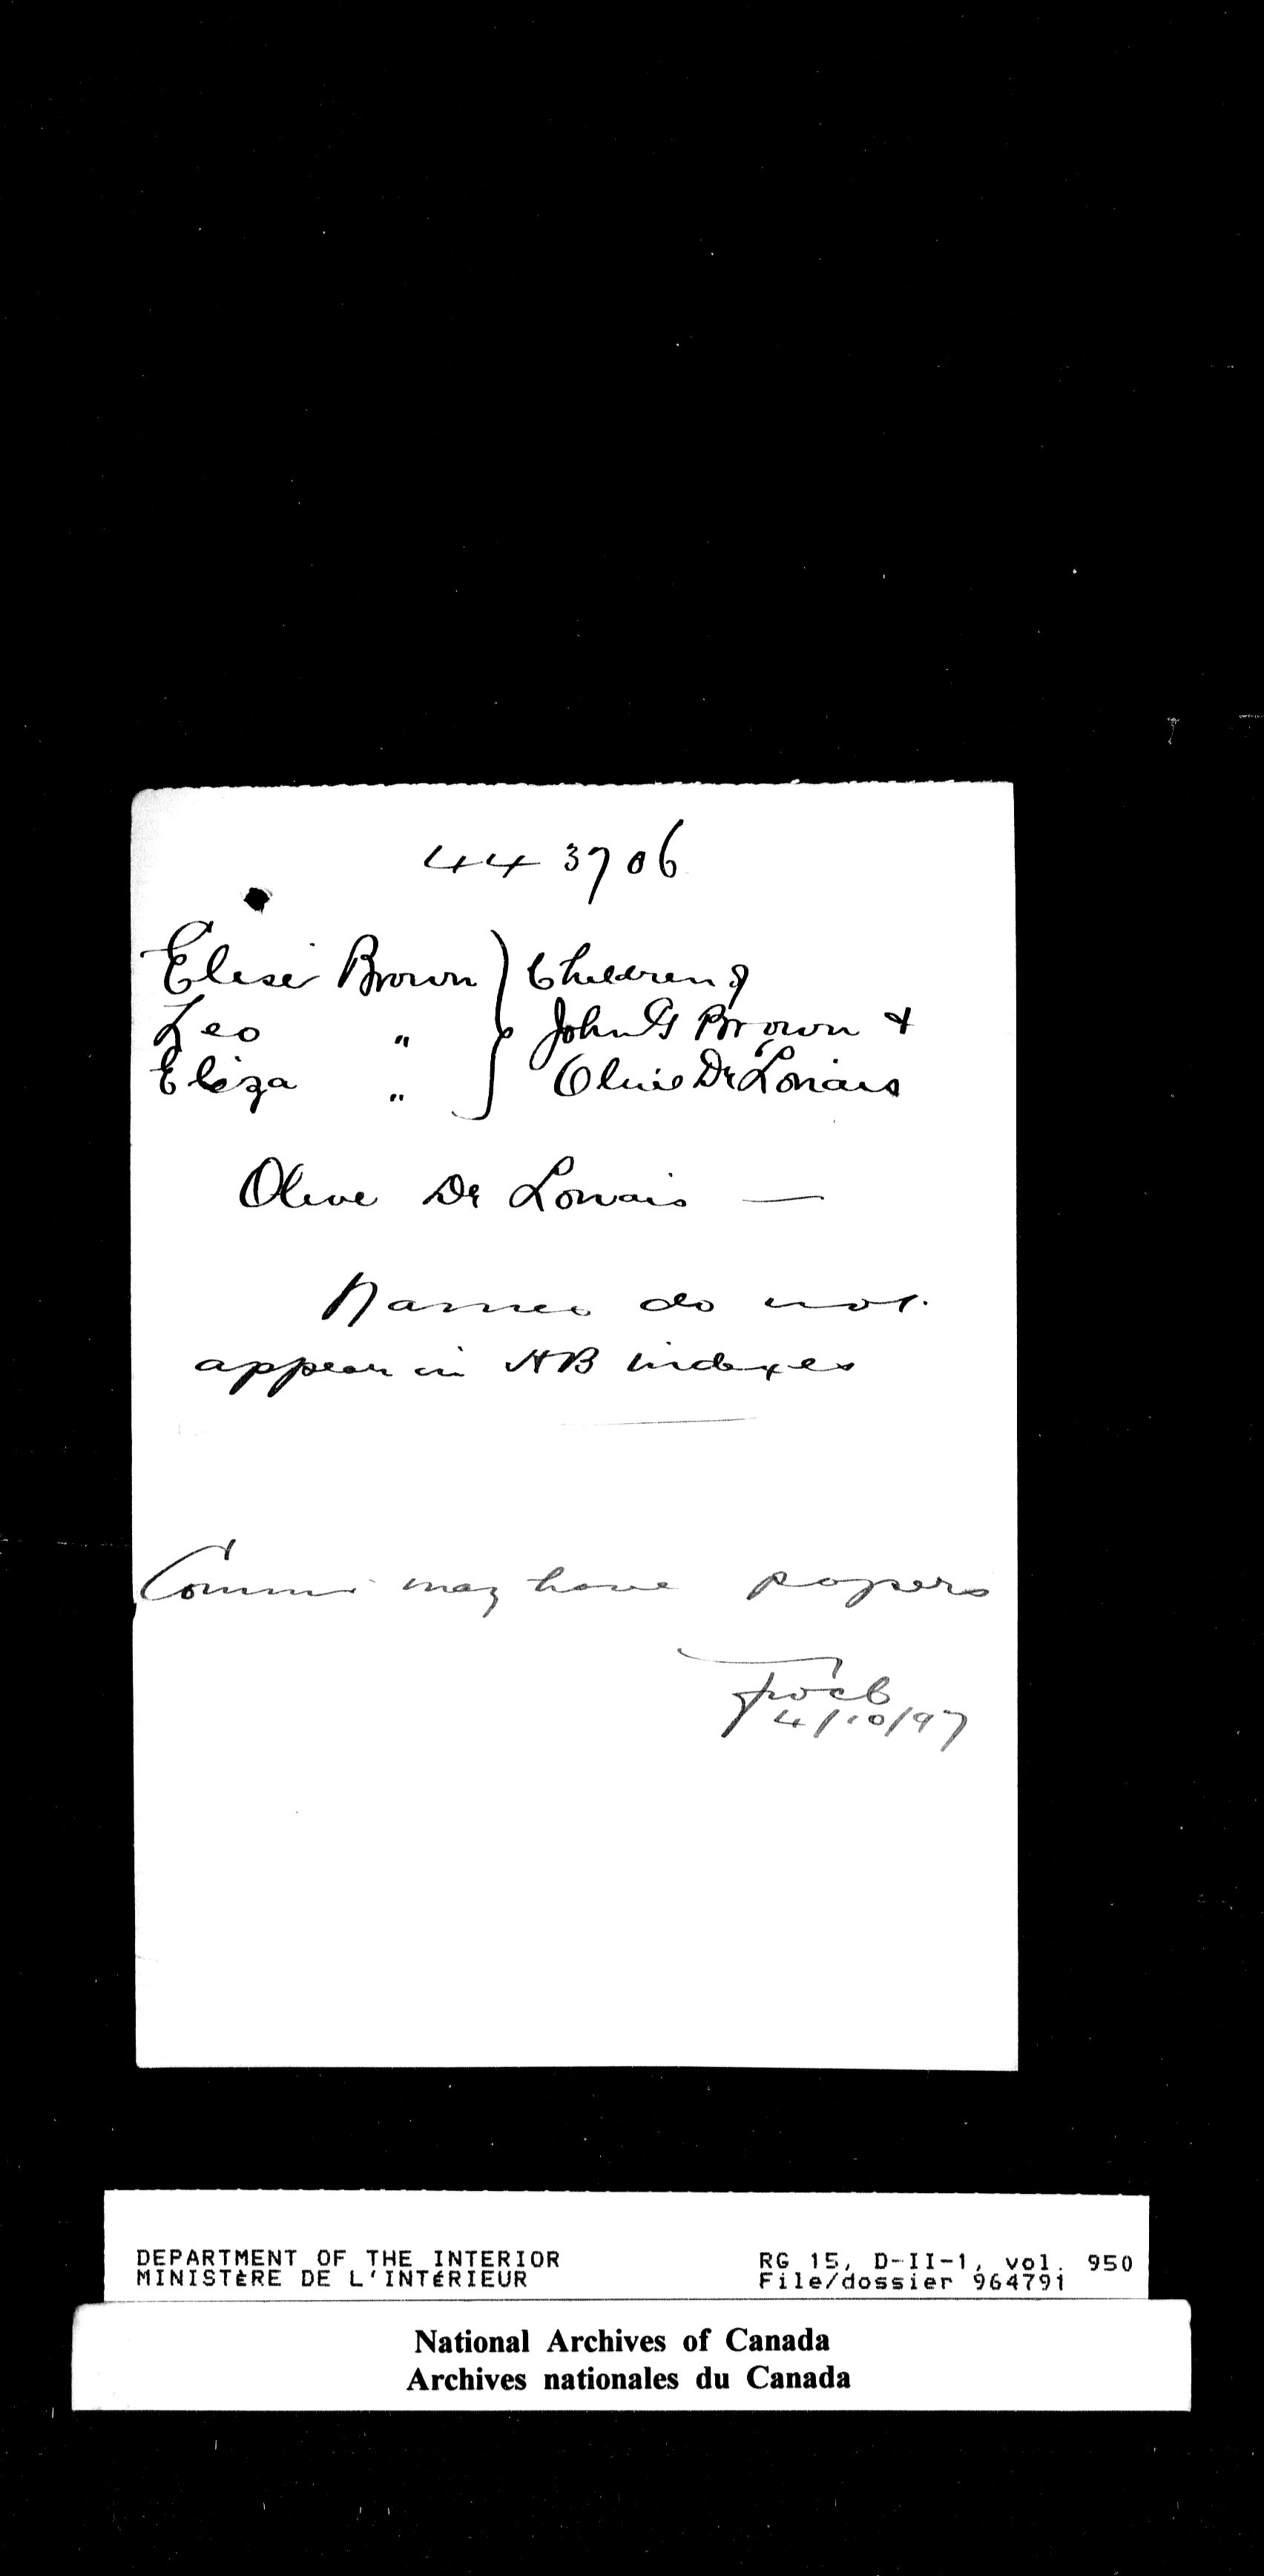 443706
Elise Brown } Children of
Leo " } John G Brown &
Eliza " } Olive De Lorais
Olive De Lorais —
Names do not
appear in HB indexes
Commr may have papers
4/10/97
DEPARTMENT OF THE INTERIOR RG 15, D-II-1, vol. 950
MINISTÈRE DE L'INTÉRIEUR File/dossier 964791
National Archives of Canada
Archives nationales du Canada